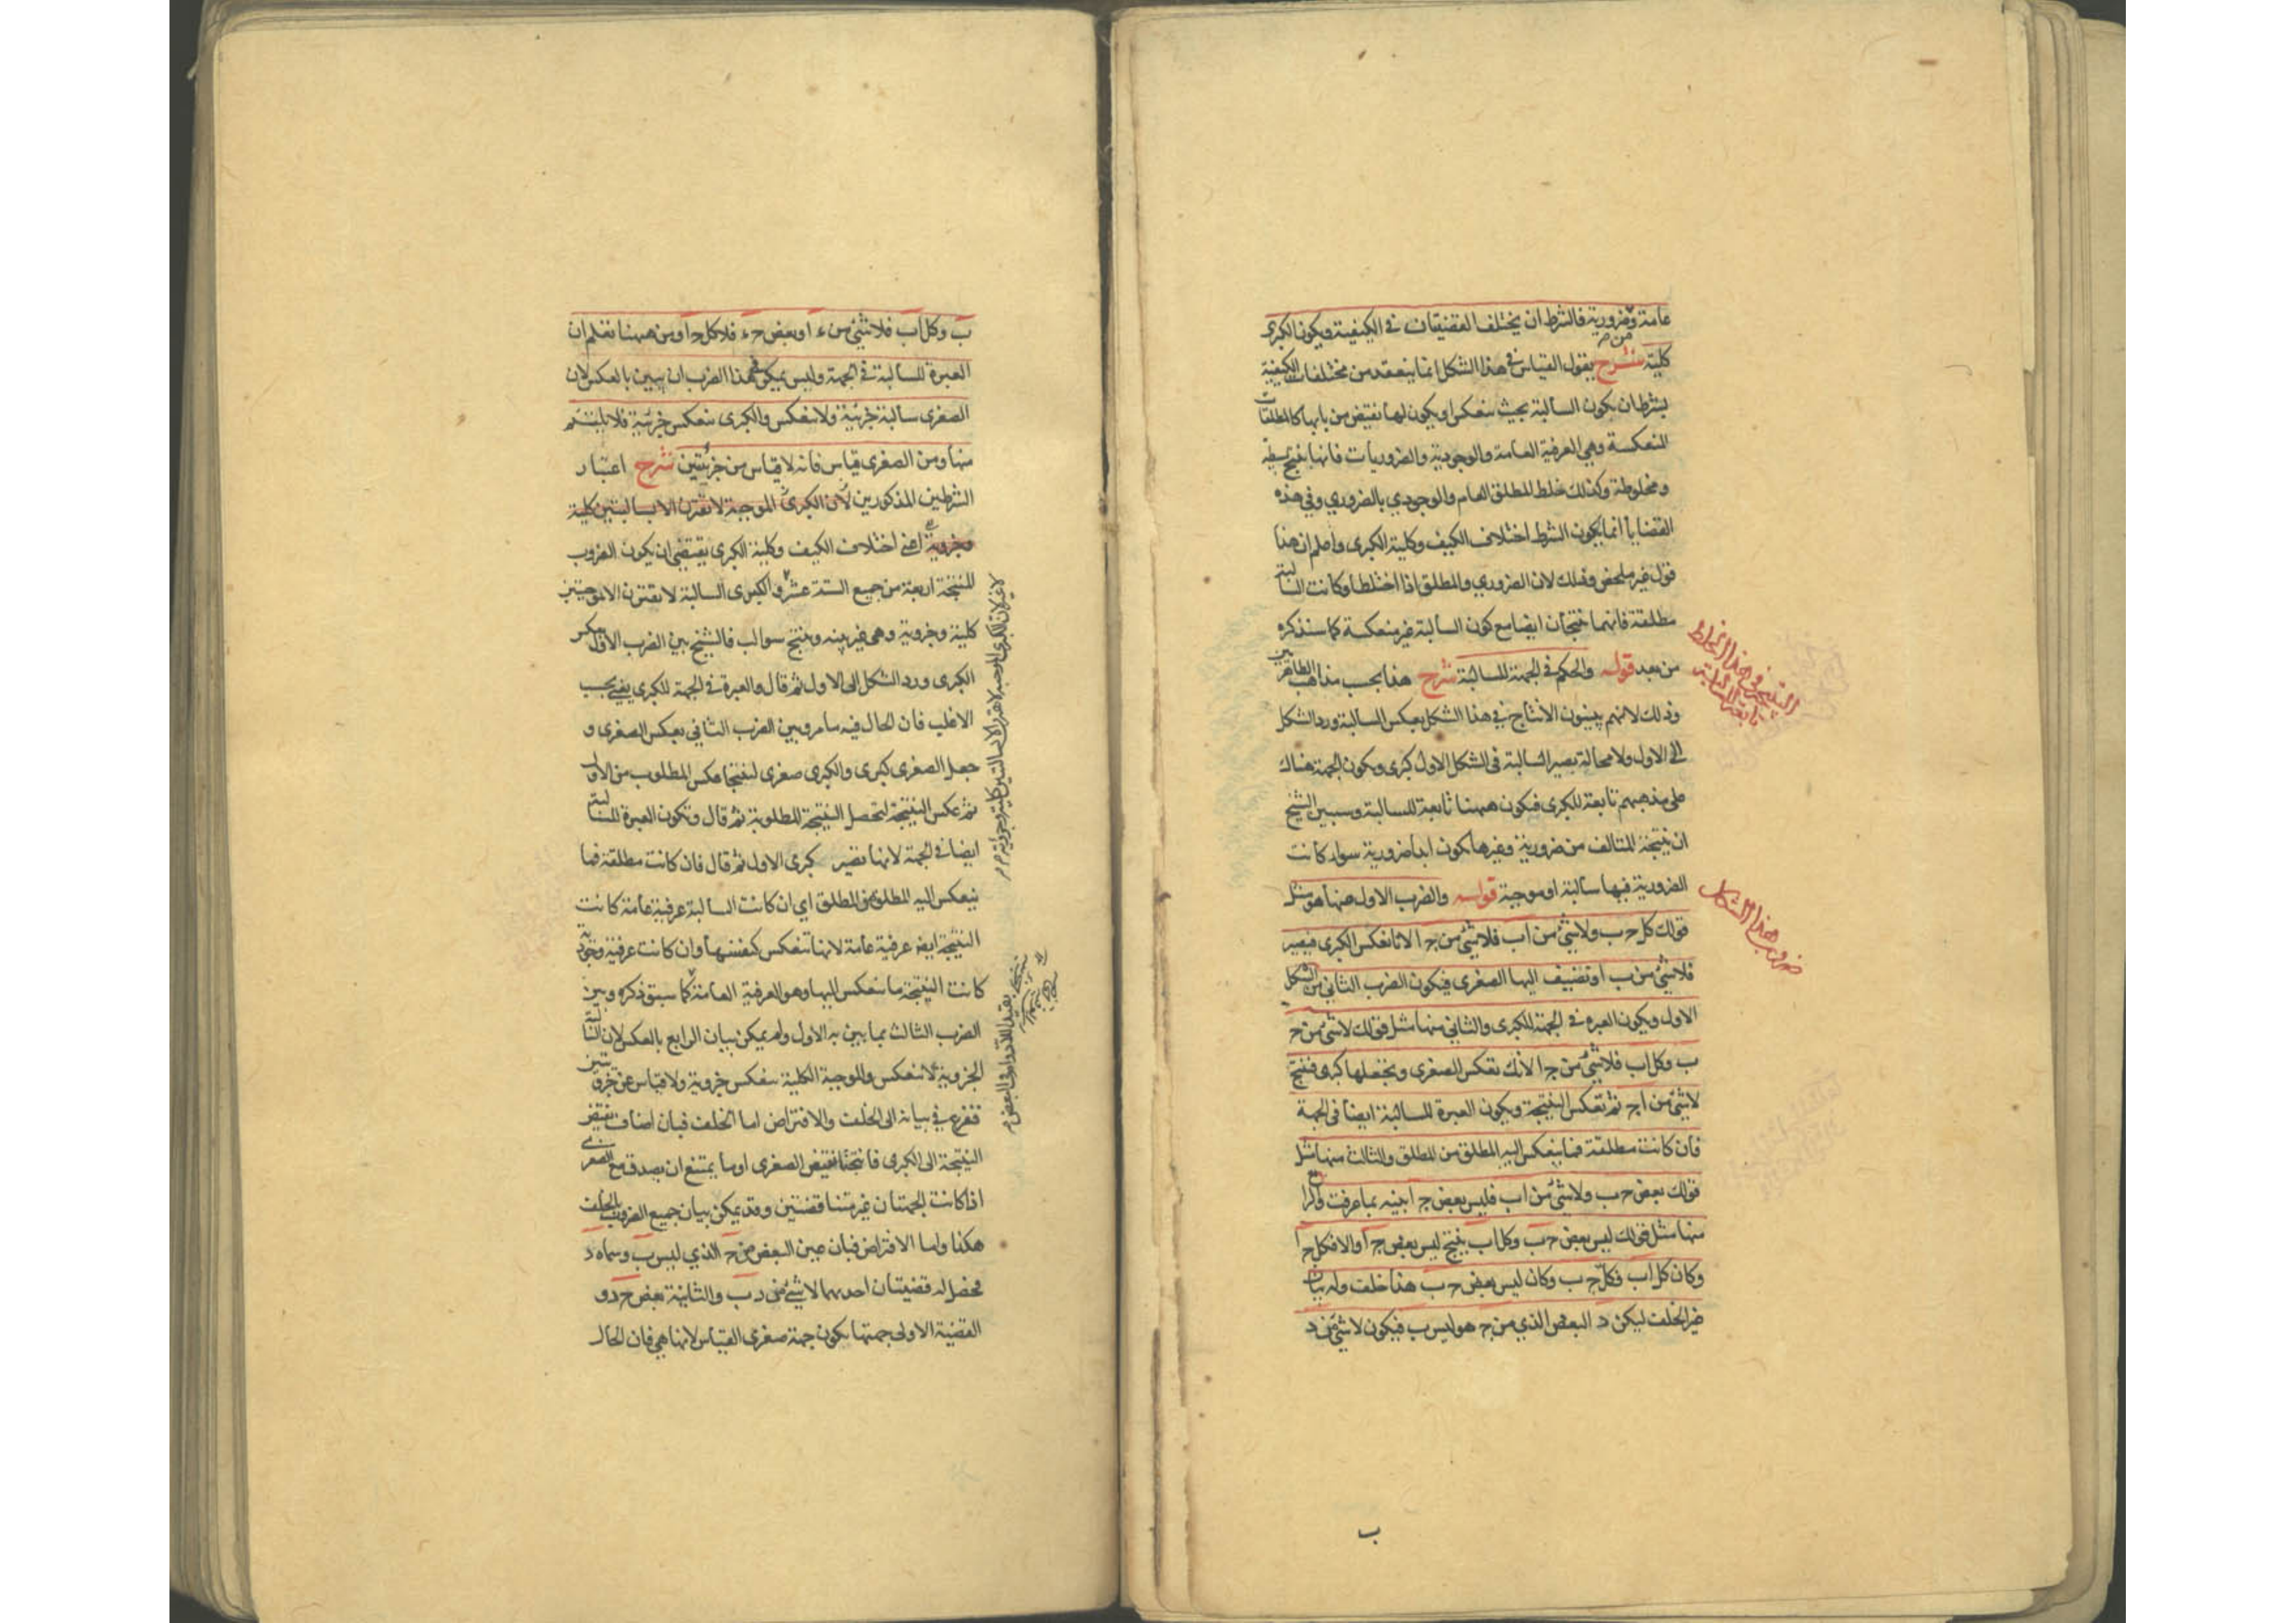 عامة وضرورية فالشرط ان يختلف القضيتان في الكيفية ويكون الكبرى
كلية شرح يقول القياس في هذا الشكل انما ينعقد من مختلفات الكيفية
بشرط ان يكون السالبة بحيث ينعكس او يكون لها نقيض من بابها كالمطلقات
المنعكسة وهي العرفية العامة والوجودية والضروريات فانها ينتج بسيطة
ومخلوطة وكذلك خلط المطلق العام والوجودي بالضروري وفي هذه
القضايا انما يكون الشرط اختلاف الكيف وكلية الكبرى واعلم ان هذا
قول غير ملخص وذلك لان الضروري والمطلق اذا اختلطا وكانت السالبة
مطلقة فانهما ينتجان ايضا مع كون السالبة غير منعكسة كما سنذكره
من بعد قوله والحكم في الجهة للسالبة شرح هذا بحسب مذاهب الظاهريين
وذلك لانهم يبينون الانتاج في هذا الشكل بعكس السالبة ورد الشكل
الى الاول ولا محالة يصير السالبة في الشكل الاول كبرى ويكون الجهة هناك
على مذهبهم تابعة للكبرى فيكون ههنا تابعة للسالبة وسيبين الشيخ
ان نتيجة المتالف من ضرورية وغيرها يكون ابدا ضرورية سواء كانت
الضرورية فيها سالبة او موجبة قوله والضرب الاول منها هو مثل
قولك كل ج ب ولا شئ من ا ب فلا شئ من ج ا لانا نعكس الكبرى فيصير
فلا شئ من ب ا وتضيف اليها الصغرى فيكون الضرب الثاني من الشكل
الاول ويكون العبرة في الجهة للكبرى والثاني منها مثل قولك لا شئ من ج
ب وكل ا ب فلا شئ من ج ا لانك تعكس الصغرى وتجعلها كبرى فينتج
لا شئ من ا ج ثم تعكس النتيجة ويكون العبرة للسالبة ايضا في الجهة
فان كانت مطلقة فما ينعكس اليه المطلق من المطلق والثالث منها مثل
قولك بعض ج ب ولا شئ من ا ب فليس بعض ج ا بينه بما عرفت والرابع
منها مثل قولك ليس بعض ج ب وكل ا ب ينتج ليس بعض ج ا والا فكل ج ا
وكان كل ا ب فكل ج ب وكان ليس بعض ج ب هذا خلف وله بيان
غير الخلف ليكن د البعض الذي من ج هو ليس ب فيكون لا شئ من د
ب
النتيجة في هذا الخلط
تابعة للسالبة
ضروب هذا الشكل
ب وكل ا ب فلا شئ من د ا وبعض ج د فلا كل ج ا ومن ههنا نعلم ان
العبرة للسالبة في الجهة وليس يمكن في هذا الضرب ان يبين بالعكس لان
الصغرى سالبة جزئية ولا تنعكس والكبرى تنعكس جزئية فلا يلتئم
منها ومن الصغرى قياس فانه لا قياس من جزئيتين شرح اعتبار
الشرطين المذكورين لان الكبرى الموجبة لا تقترن الا بسالبتين كلية
وجزوية اعني اختلاف الكيف وكلية الكبرى يقتضي ان يكون الضروب
المنتجة اربعة من جميع الستة عشر والكبرى السالبة لا تقترن الا بموجبتين
كلية وجزوية وهي غير بينه وينتج سوالب فالشيخ بين الضرب الاول بعكس
الكبرى ورد الشكل الى الاول ثم قال والعبرة في الجهة للكبرى يعني بحسب
الاغلب فان الحال فيه ما مر وبين الضرب الثاني بعكس الصغرى و
جعل الصغرى كبرى والكبرى صغرى لينتجا عكس المطلوب من الاول
ثم عكس النتيجة لتحصل النتيجة المطلوبة ثم قال وتكون العبرة للسالبة
ايضا في الجهة لانها تصير كبرى الاول ثم قال فان كانت مطلقة فما
ينعكس اليه المطلق من المطلق اي ان كانت السالبة عرفية عامة كانت
النتيجة ايضا عرفية عامة لانها تنعكس كنفسها وان كانت عرفية وجودية
كانت النتيجة ما تنعكس اليها وهو العرفية العامة كما سبق ذكره وبين
الضرب الثالث بما بين به الاول ولم يمكن بيان الرابع بالعكس لان السالبة
الجزوية لا تنعكس والموجبة الكلية تنعكس جزوية ولا قياس عن جزويتين
ففزع في بيانه الى الخلف والافتراض اما الخلف فبان اضاف نقيض
النتيجة الى الكبرى فانتجتا نقيض الصغرى او ما يمتنع ان يصدق مع الصغرى
اذا كانت الجهتان غير متناقضتين وقد يمكن بيان جميع الضروب بالخلف
هكذا واما الافتراض فبان عين البعض من ج الذي ليس ب وسماه د
فحصل له قضيتان احديهما لا شئ من د ب والثانية بعض ج د و
القضية الاولى جهتها يكون جهة صغرى القياس لانها هي فان الحال
لان الكبرى الموجبة لا تقترن الا بسالبتين كلية وجزوية